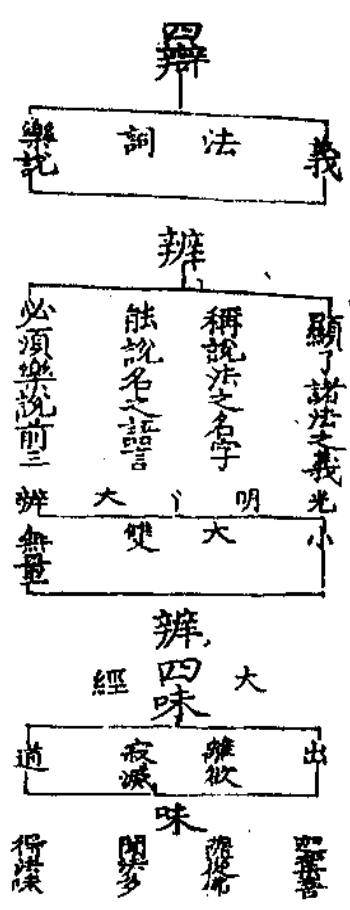 四辯
義 法 詞 樂說
辨
顯了諸法之義
稱說法之名字
能說名之語言
必須樂說前三
光明大辨
小大雙無量
辨
大經
四味
出 離欲 寂滅 道
味